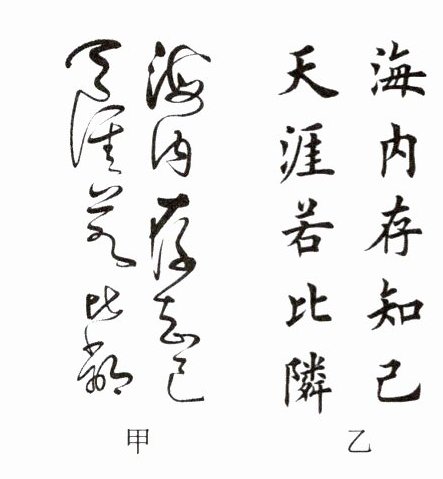 海内存知己
天涯若比隣
乙
海内存知己
天涯若比鄰
甲